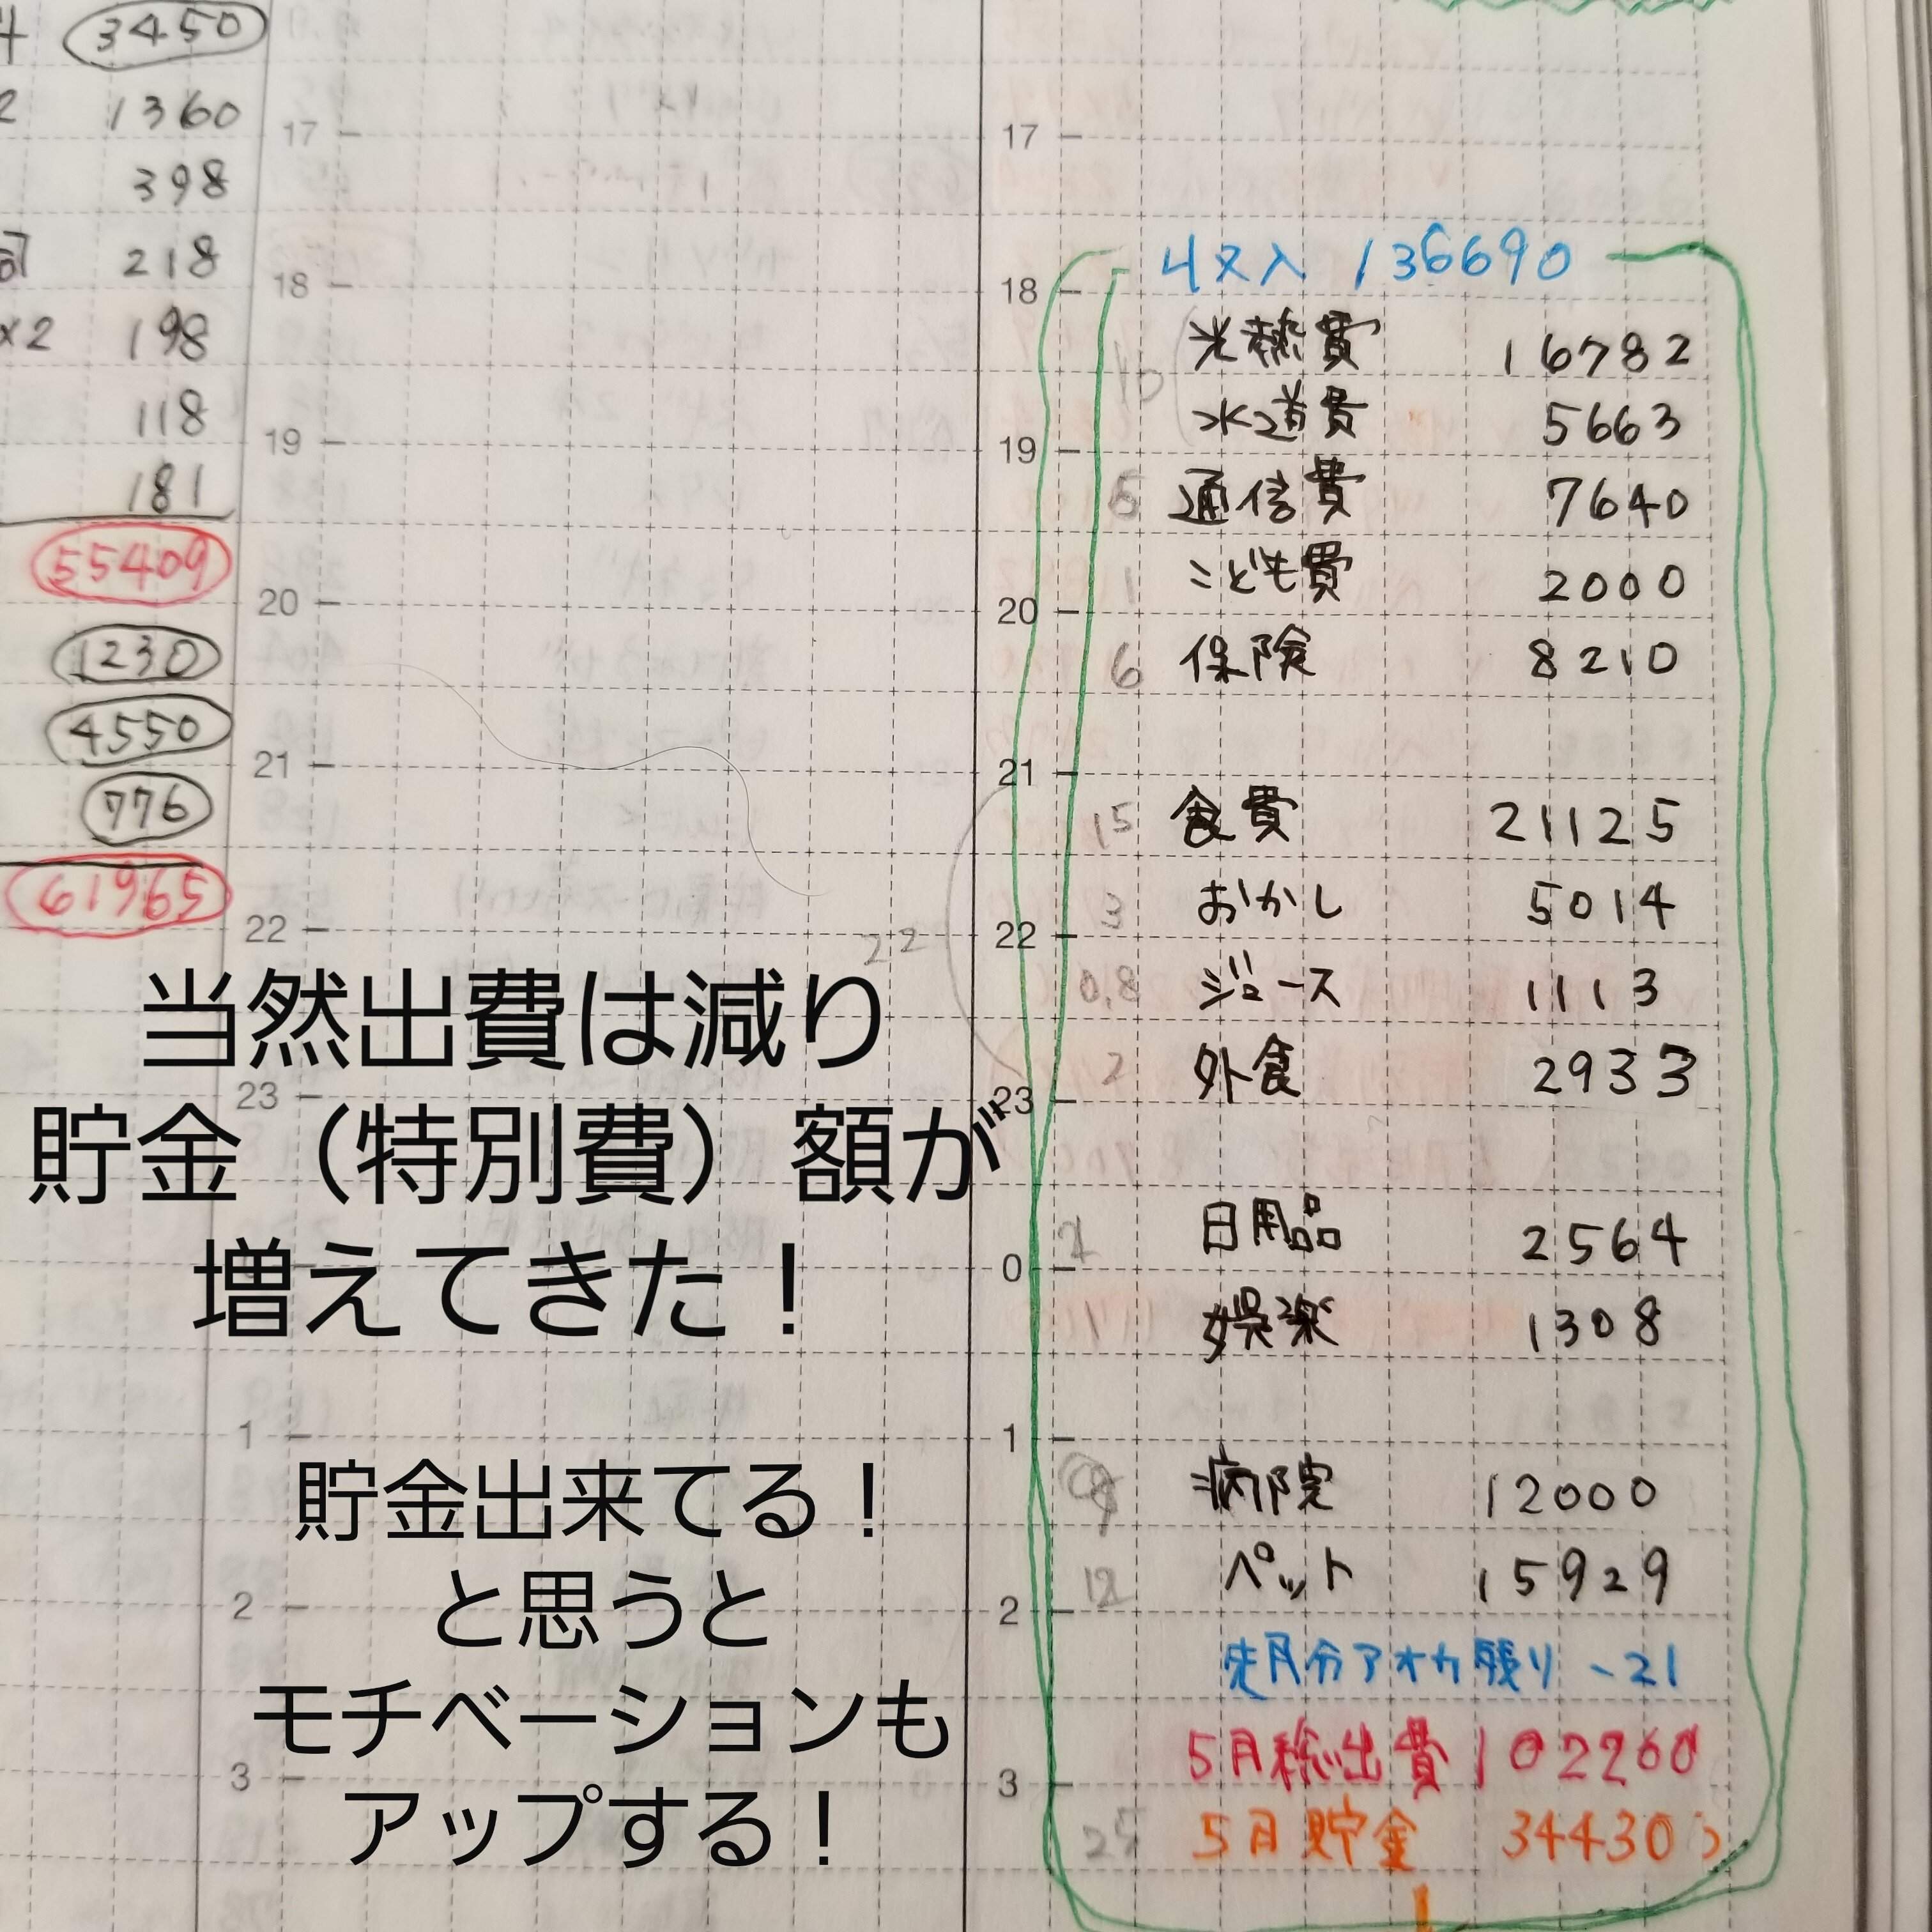 3450
1360
398
218
×2 198
118
181
55409
1230
4550
776
61965
17
18
19
20
21
22
23
1
2
3
22
当然出費は減り
貯金（特別費）額が
増えてきた！
貯金出来てる！
と思うと
モチベーションも
アップする！
17
18
19
20
21
22
23
0
1
2
3
収入 136690
10 光熱費 16782
水道費 5663
5 通信費 7640
1 こども費 2000
6 保険 8210
15 食費 21125
3 おかし 5014
0,8 ジュース 1113
2 外食 2933
日用品 2564
1 娯楽 1308
9 病院 12000
12 ペット 15929
先月分アオカ残り -21
5月総出費 102260
25 5月貯金 34430